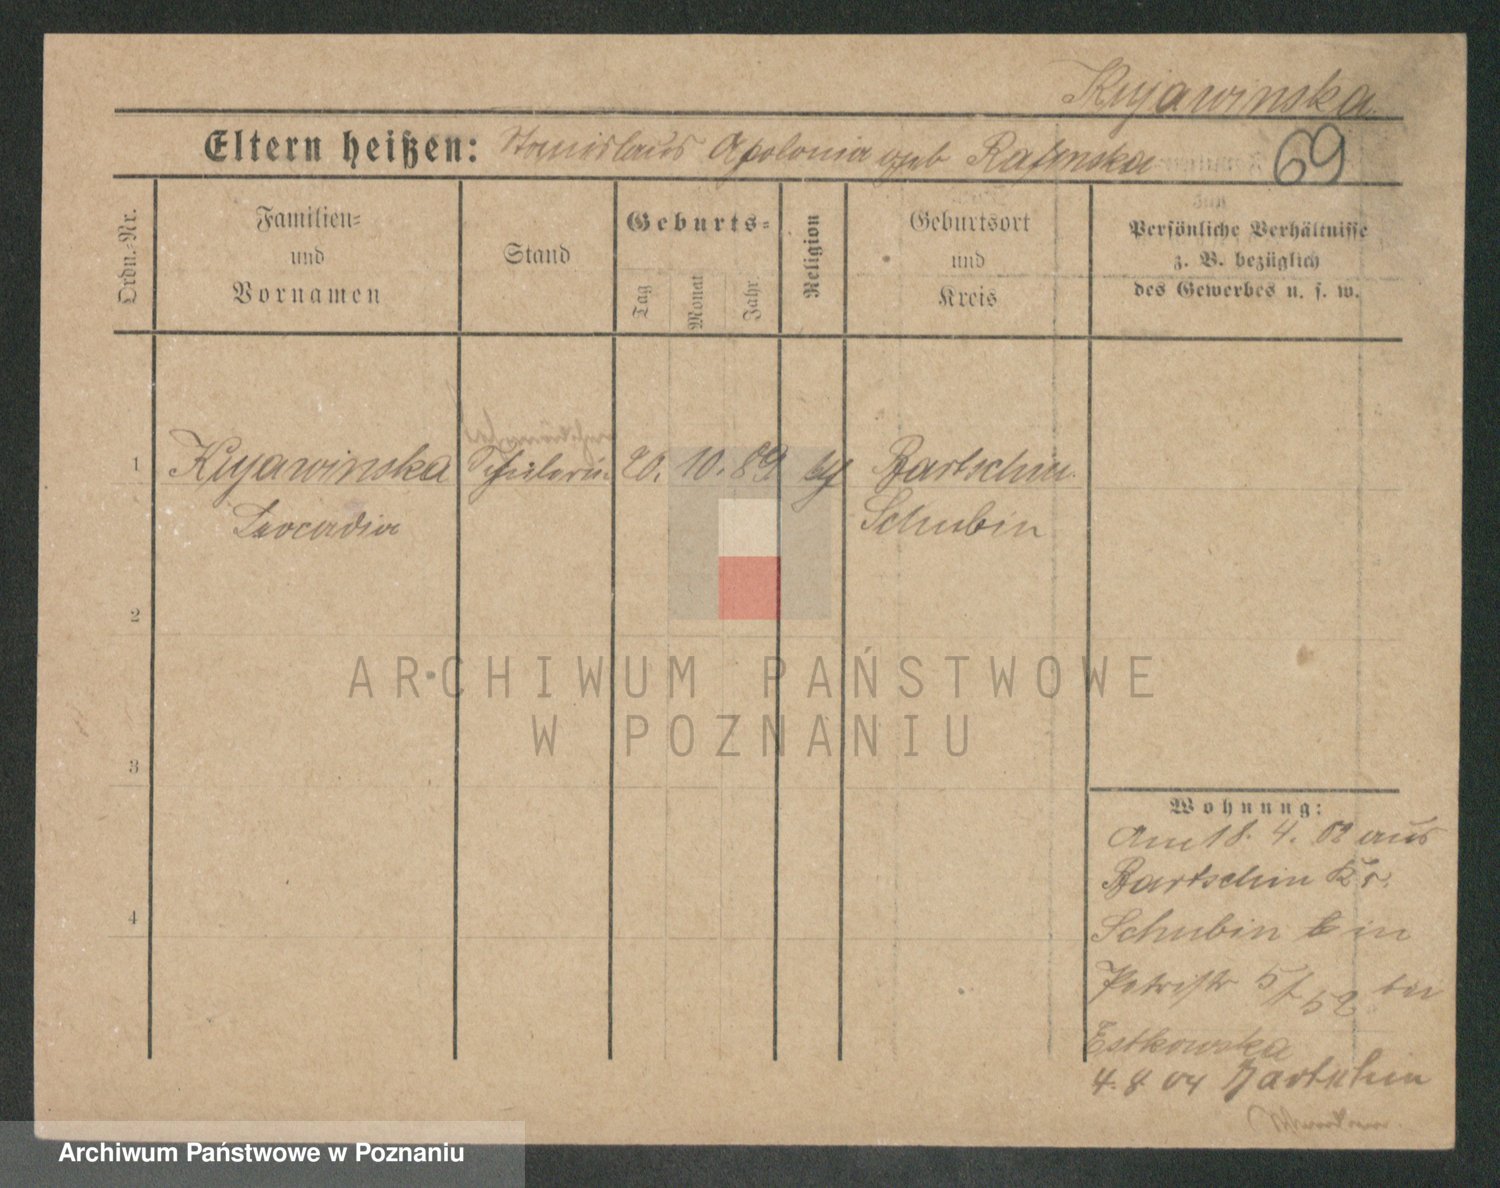 Kujawinska.
Eltern heißen: Stanislaus Apolonia geb
69
Ordn.-Nr.
Familien-
und
Vornamen
Stand
Geburts-
Tag
Monat
Jahr
Religion
Geburtsort
und
Kreis
Persönliche Verhältnisse
z. B. bezüglich
des Gewerbes u. s. w.
1 Kujawinska Schülerin 20. 10. 89 Bartschin
Leocadia Schubin
2
3
4
ARCHIWUM PAŃSTWOWE
W POZNANIU
Wohnung:
Am 18. 4. 02 aus
Bartschin Kr.
Schubin in
Petristr 5 bei
Estkowska
4. 8 04 Bartschin
Archiwum Państwowe w Poznaniu